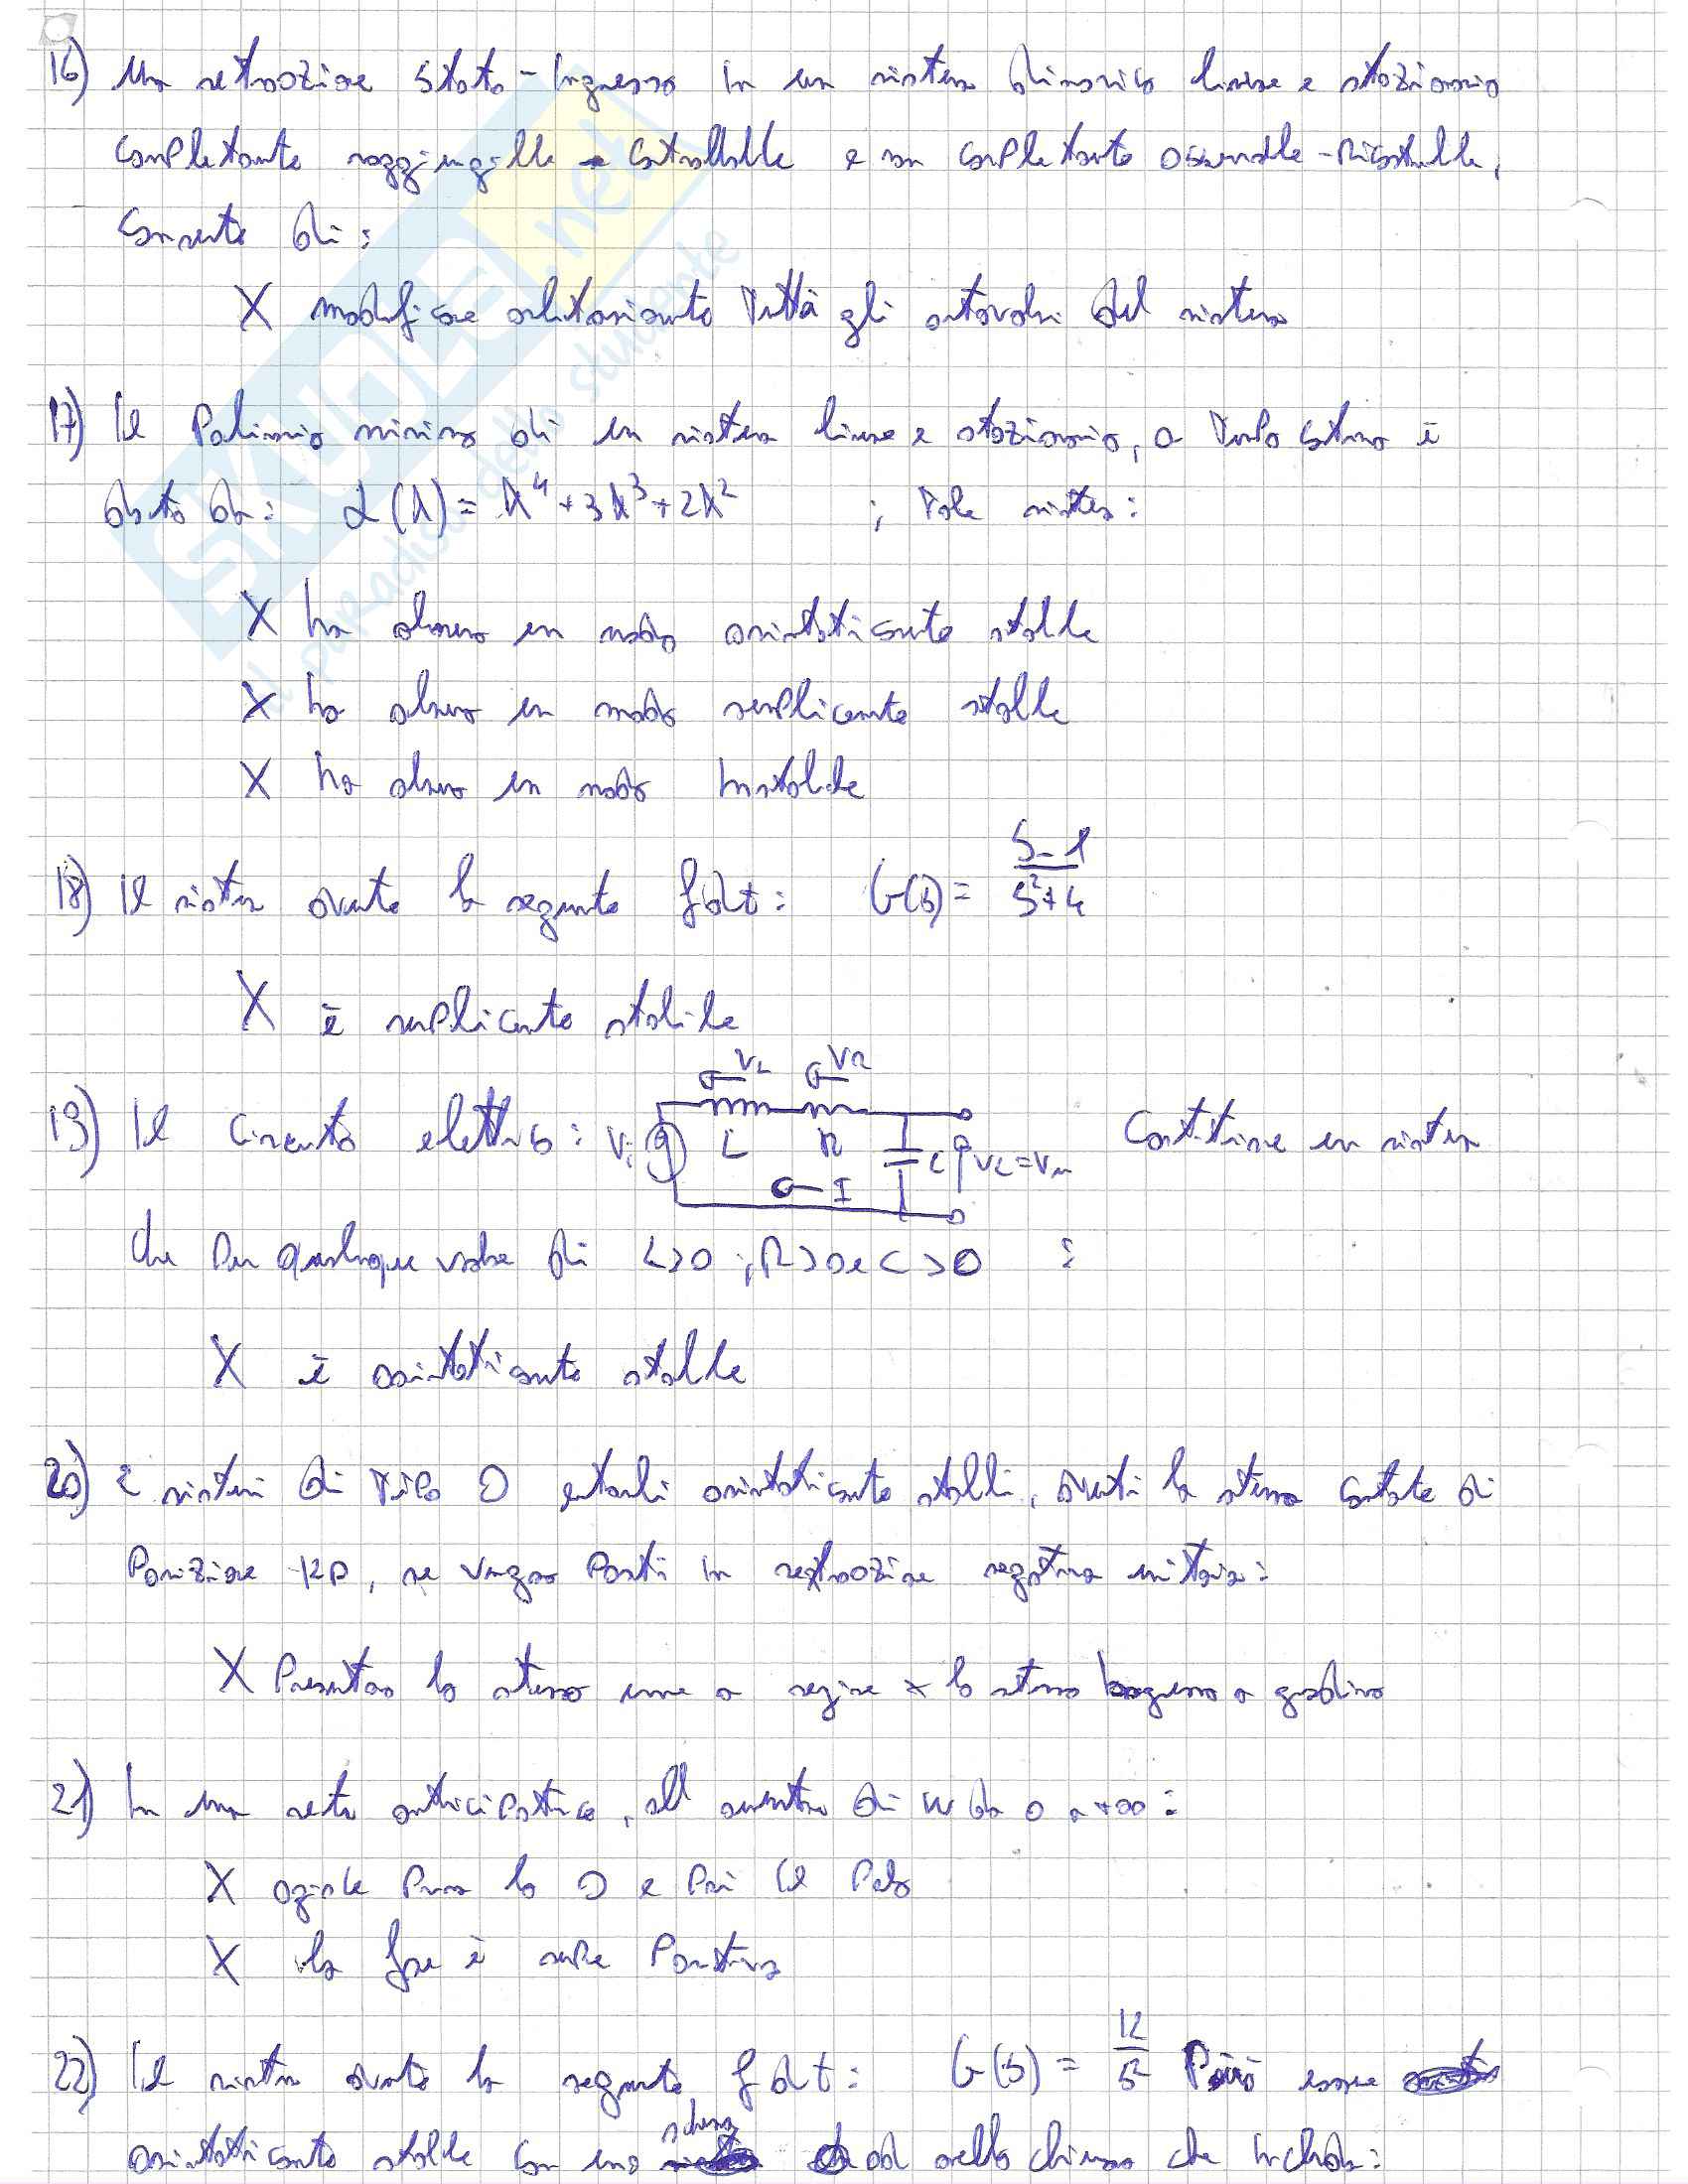 16) Una retroazione stato-ingresso in un sistema dinamico lineare e stazionario
completamente raggiungibile e controllabile e non completamente osservabile-ricostruibile,
consente di:
X modificare arbitrariamente tutti gli autovalori del sistema
17) Il polinomio minimo di un sistema lineare e stazionario, a tempo continuo è
dato da: α(λ) = λ⁴+3λ³+2λ² ; tale sistema:
X ha almeno un modo asintoticamente stabile
X ha almeno un modo semplicemente stabile
X ha almeno un modo instabile
18) Il sistema avente la seguente fdt: G(s) = (S-1)/(S²+4)
X è semplicemente stabile
VL VR
19) Il circuito elettrico: Vi L R C VC=Vu Costituisce un sistema
I
che per qualunque valore di L>0 ; R>0 e C>0 :
X è asintoticamente stabile
20) 2 sistemi di tipo 0 entrambi asintoticamente stabili, aventi la stessa costante di
posizione Kp, se vengono posti in retroazione negativa unitaria:
X Presentano lo stesso errore a regime x lo stesso ingresso a gradino
21) In una rete anticipatrice, all'aumentare di w da 0 a +∞ :
X agisce prima lo 0 e poi il Polo
X la fase è sempre Positiva
22) Il sistema avente la seguente fdt: G(s) = K/S² Può essere
schema
asintoticamente stabile con uno ad anello chiuso che includa:
SKUOLA.net
il paradiso dello studente